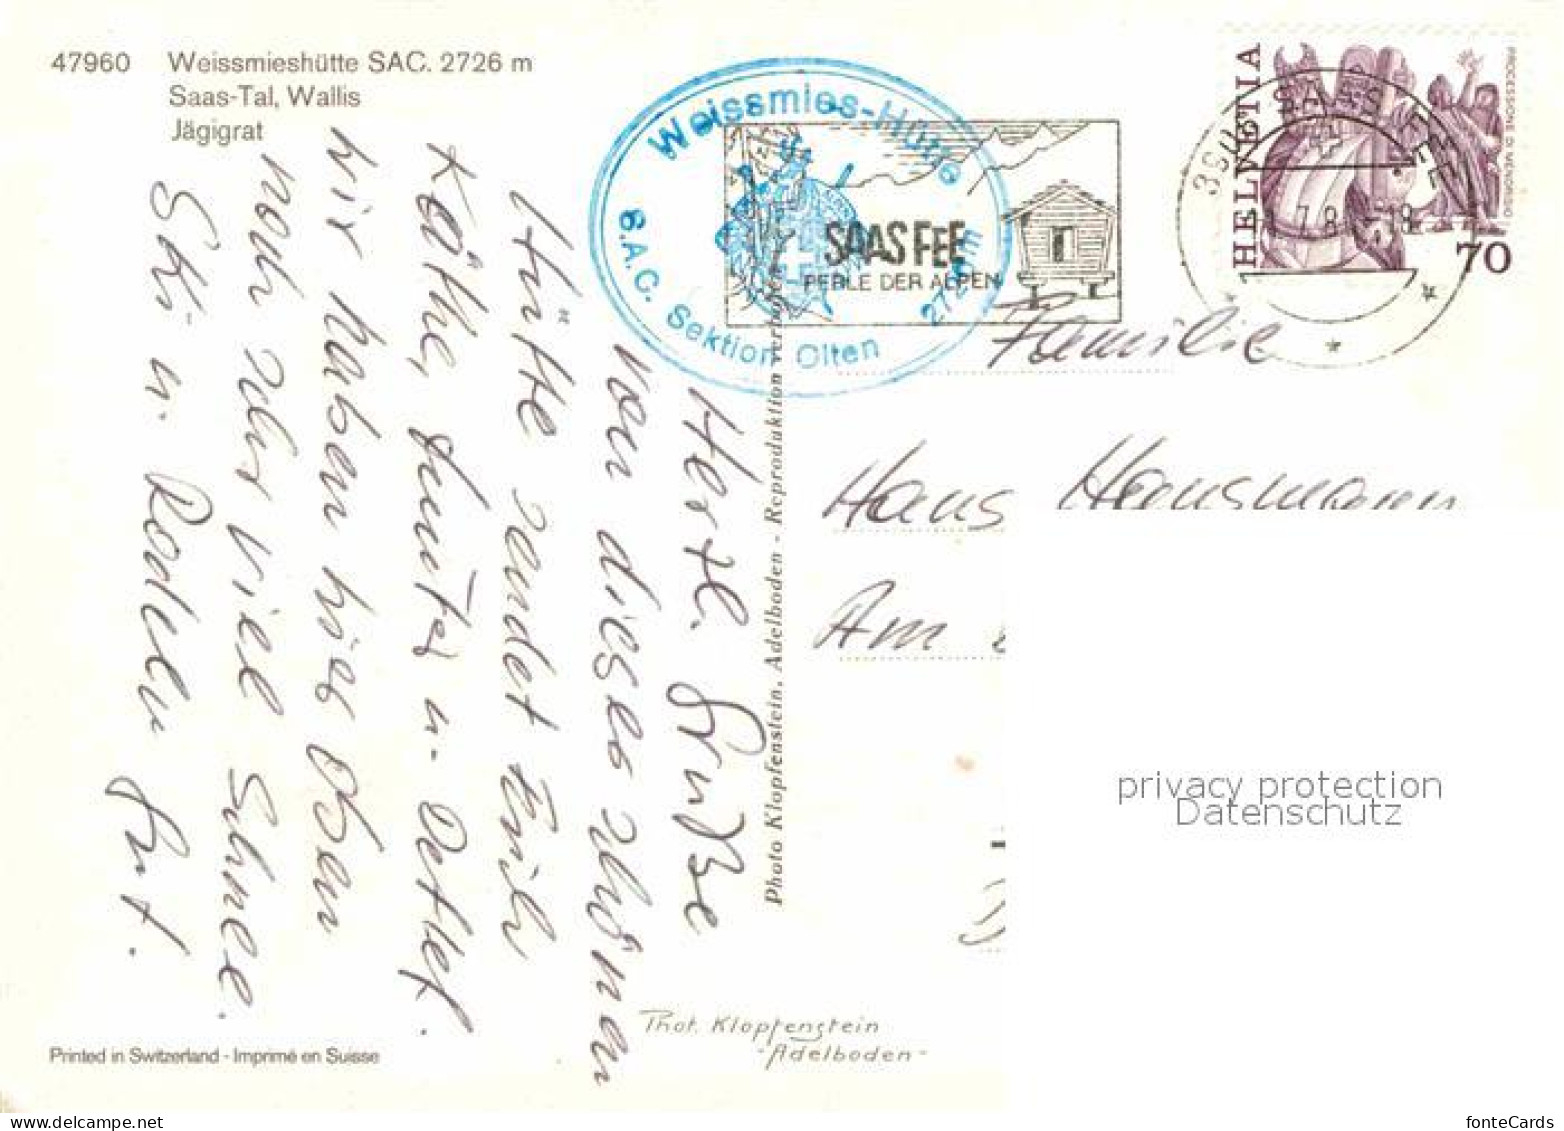 47960 Weissmieshütte SAC. 2726 m
Saas-Tal, Wallis
Jägigrat
Weissmies-Hütte
S.A.C. Sektion Olten
2726 m
SAAS FEE
PERLE DER ALPEN
HELVETIA
PROCESSIONE DI MENDRISIO
70
3906 SAAS FEE
Herzl. Grüße
von dieser schönen
Hütte sendet Euch
Käthe, Günter u. Detlef.
Wir haben hier oben
noch sehr viel Schnee.
Ski u. Rodeln gut.
Photo Klopfenstein, Adelboden - Reproduktion verboten
Familie
Hans Hansmann
Am
privacy protection
Datenschutz
Phot. Klopfenstein
-Adelboden-
Printed in Switzerland - Imprimé en Suisse
fonteCards